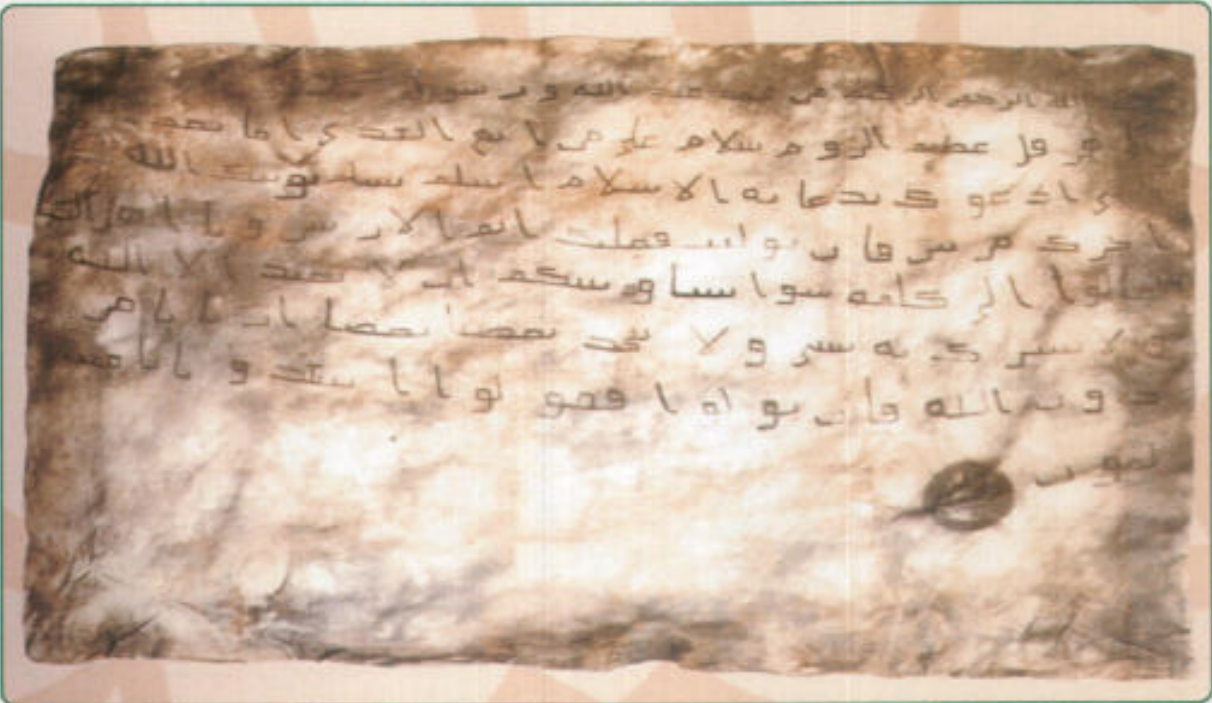 الله الرحمن الرحيم من محمد عبد الله ورسوله
هرقل عظيم الروم سلام على من اتبع الهدى اما بعد
ادعوك بدعاية الاسلام اسلم تسلم يوتك الله
اجرك مرتين فان توليت فعليك اثم الاريسين ويا اهل الكتاب
تعالوا الى كلمة سوا بيننا وبينكم ان لا نعبد الا الله
ولا نشرك به شى ولا يتخذ بعضنا بعضا اربابا من
دون الله فان تولوا فقولوا اشهدوا بانا مس
لمون